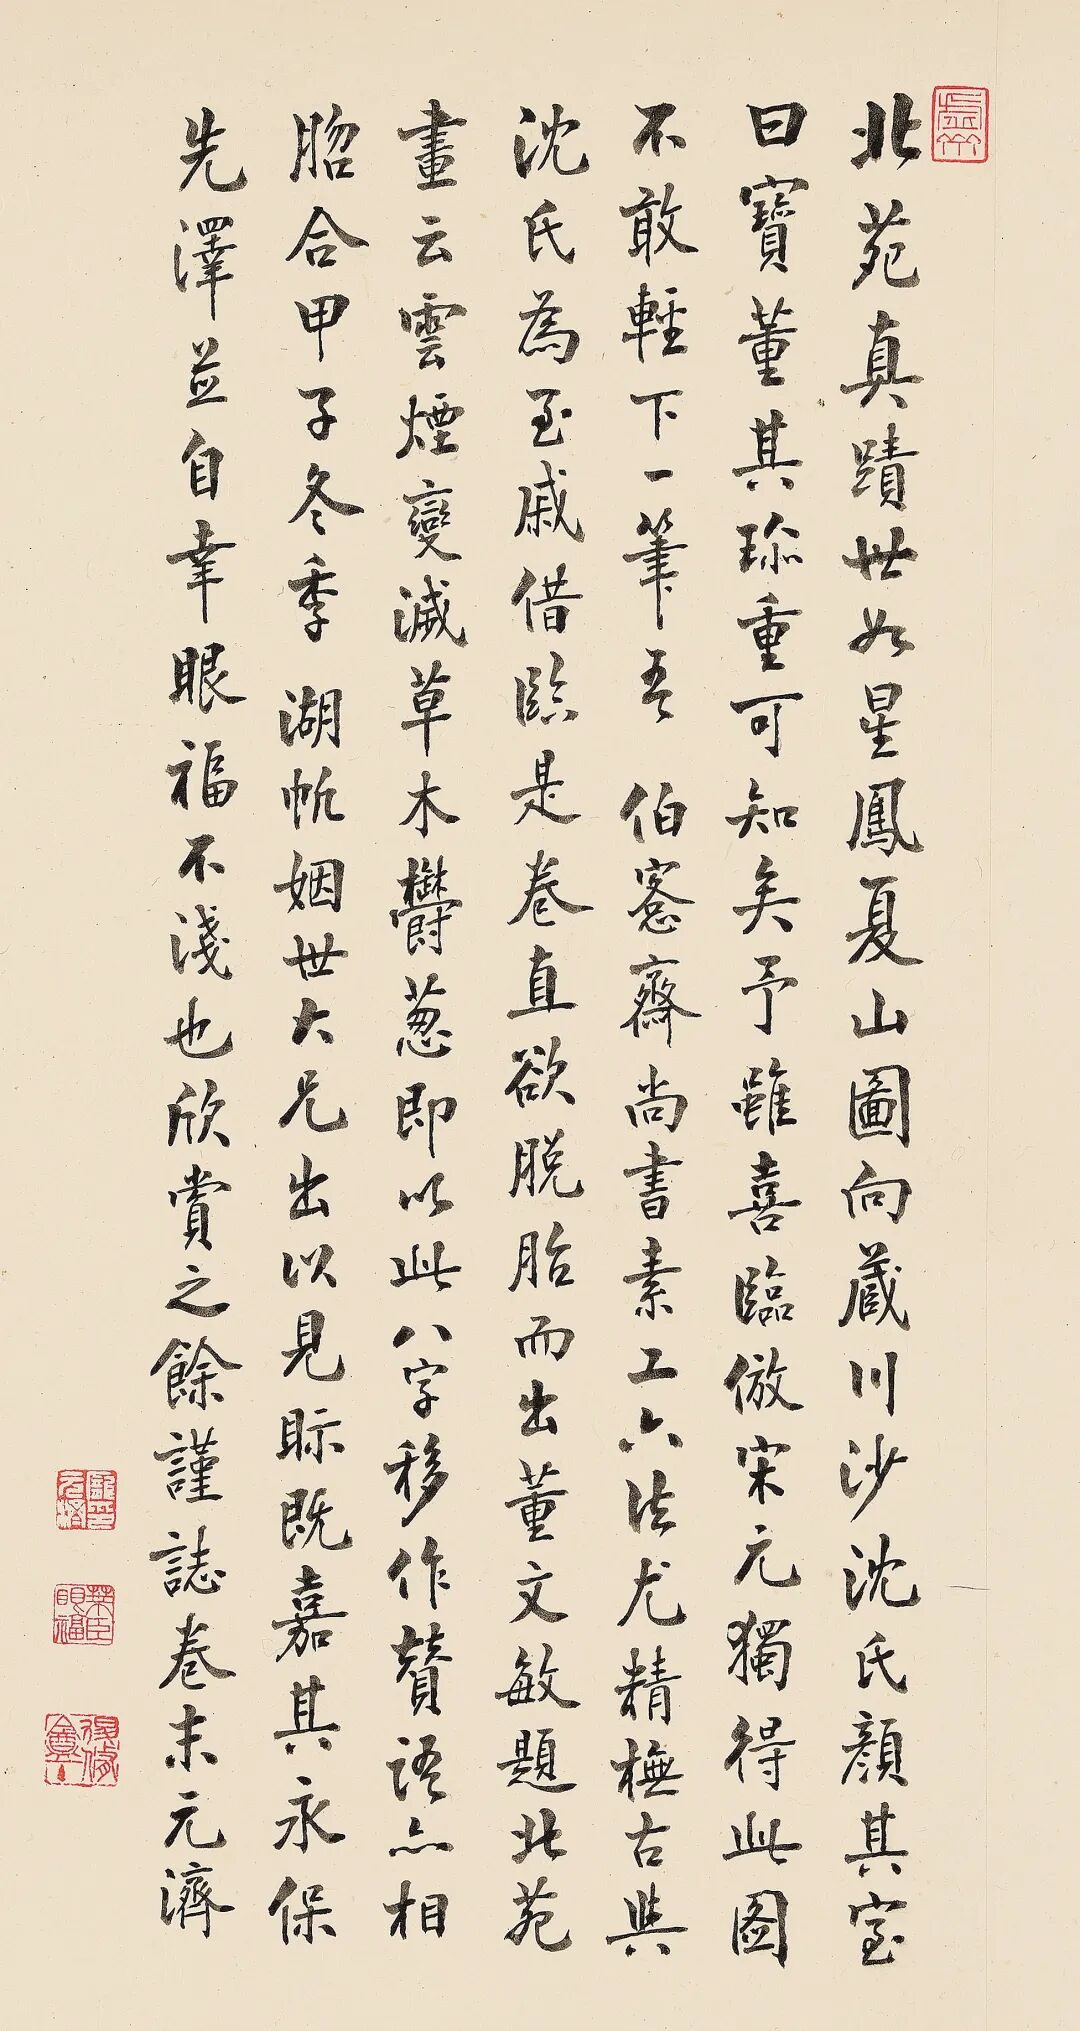 北苑真蹟世如星鳳夏山圖向藏川沙沈氏顏其室
曰寶董其珎重可知矣予雖喜臨倣宋元獨得此圖
不敢輕下一筆吾 伯愙齋尚書素工六法尤精橅古與
沈氏為至戚借臨是卷直欲脫胎而出董文敏題北苑
畫云雲煙變滅草木鬱葱即以此八字移作贊語亦相
脗合甲子冬季 湖帆姻世大兄出以見眎既嘉其永保
先澤並自幸眼福不淺也欣賞之餘謹誌卷末元濟